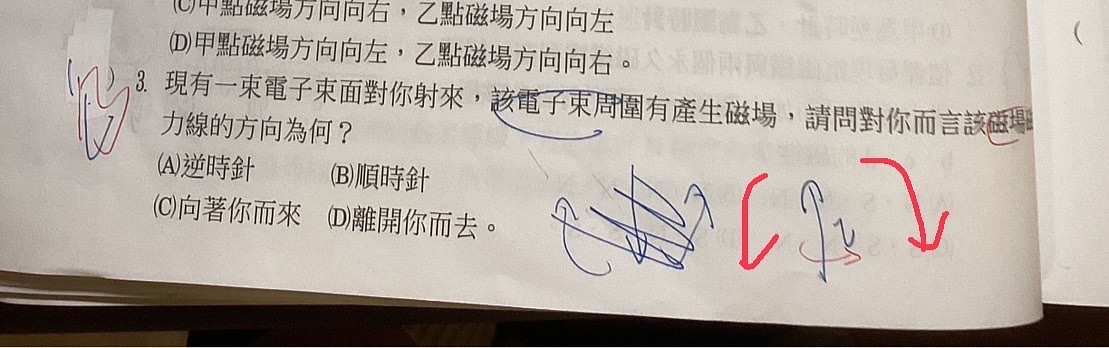 (C)甲點磁場方向向右，乙點磁場方向向左
(D)甲點磁場方向向左，乙點磁場方向向右。
( ) 3. 現有一束電子束面對你射來，該電子束周圍有產生磁場，請問對你而言該磁場
力線的方向為何？
(A)逆時針 (B)順時針
(C)向著你而來 (D)離開你而去。
(